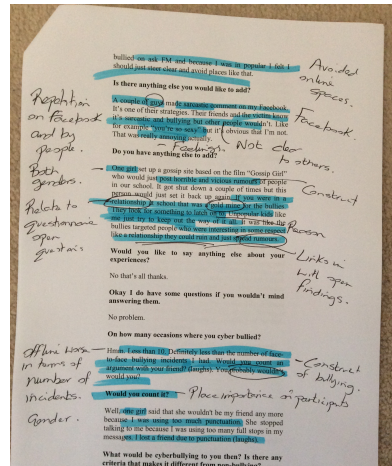 bullied on ask FM and because I was in popular I felt I
should just steer clear and avoid places like that.
Avoided
online
spaces.
Is there anything else you would like to add?
A couple of guys made sarcastic comment on my Facebook.
It's one of their strategies. Their friends and the victim know
it's sarcastic and bullying but other people wouldn't. Like
for example "you're so sexy" but it's obvious that I'm not.
That was really annoying actually.
Repetition
on Facebook
and by
people.
Facebook.
Feelings
Not clear
to others.
Do you have anything else to add?
One girl set up a gossip site based on the film "Gossip Girl"
who would just post horrible and vicious rumours of people
in our school. It got shut down a couple of times but this
person would just set it back up again. If you were in a
relationship in school that was a gold mine for the bullies.
They look for something to latch on to. Unpopular kids like
me just try to keep out the way of it all. It was like the
bullies targeted people who were interesting in some respect
like a relationship they could ruin and just spread rumours.
Both
genders.
Relate to
questionnaire
open
questions
Construct
Reason
Links in
with open
findings.
Would you like to say anything else about your
experiences?
No that's all thanks.
Okay I do have some questions if you wouldn't mind
answering them.
No problem.
On how many occasions where you cyber bullied?
Hmm. Less than 10. Definitely less than the number of face-
to-face bullying incidents I had. Would you count an
argument with your friend? (laughs). You probably wouldn't
would you?
Offline worse
in terms of
number of
incidents.
Construct
of bullying.
Would you count it?
Place importance on participants
Gender.
Well, one girl said that she wouldn't be my friend any more
because I was using too much punctuation. She stopped
talking to me because I was using too many full stops in my
messages. I lost a friend due to punctuation (laughs).
What would be cyberbullying to you then? Is there any
criteria that makes it different from non-bullying?